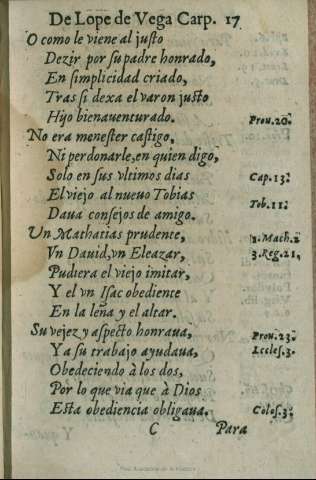 De Lope de Vega Carp. 17
O como le viene al justo
Dezir por su padre honrado,
En simplicidad criado,
Tras si dexa el varon justo
Hijo bienauenturado. Prou.20.
No era menester castigo,
Ni perdonarle, en quien digo,
Solo en sus vltimos dias Cap.13.
El viejo al nueuo Tobias
Daua consejos de amigo. Tob.11.
Un Mathatias prudente, 1.Mach.2
Vn Dauid, vn Eleazar, 3.Reg.21,
Pudiera el viejo imitar,
Y el vn Isac obediente
En la leña y el altar.
Su vejez y aspecto honraua, Prou.23.
Y a su trabajo ayudaua, Eccles.3.
Obedeciendo à los dos,
Por lo que via que à Dios
Esta obediencia obligaua. Colos.3.
C Para